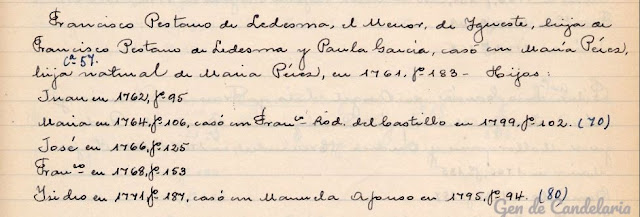 Francisco Pestano de Ledesma, el Menor, de Igueste, hijo de
Francisco Pestano de Ledesma y Paula Garcia, casó con María Pérez,
cª 57.
hija natural de Maria Pérez, en 1761, fº 183 - Hijos:
Juan en 1762, fº 95
Maria en 1764, fº 106, casó con Franco Rod. del Castillo en 1799, fº 102. (70)
José en 1766, fº 125
Franco en 1768, fº 153
Isidro en 1771, fº 187, casó con Manuela Afonso en 1795, fº 94. (80)
Gen de Candelaria